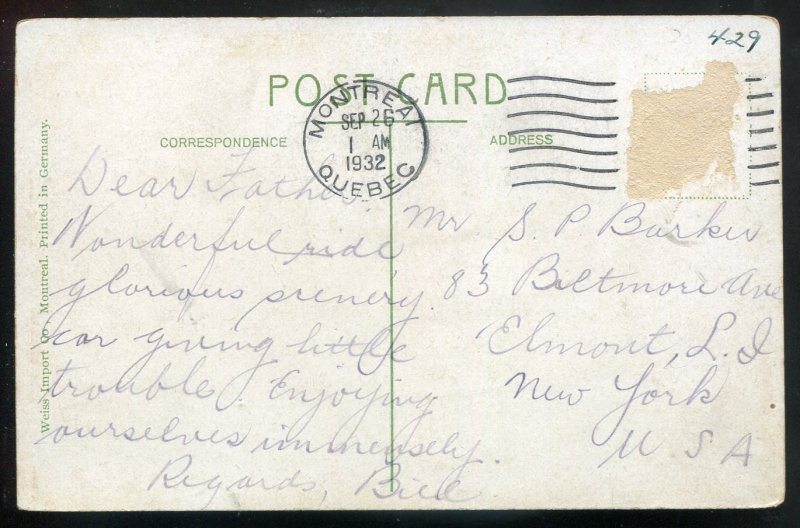 429
POST CARD
MONTREAL
SEP 26
1 AM
1932
QUEBEC
CORRESPONDENCE
ADDRESS
Weiss Import Co. Montreal. Printed in Germany.
Dear Father:
Wonderful ride
glorious scenery.
car giving little
trouble. Enjoying
ourselves immensely.
Regards, Bill
Mr. S. P. Barker
83 Biltmore Ave
Elmont, L. I
New York
U S A